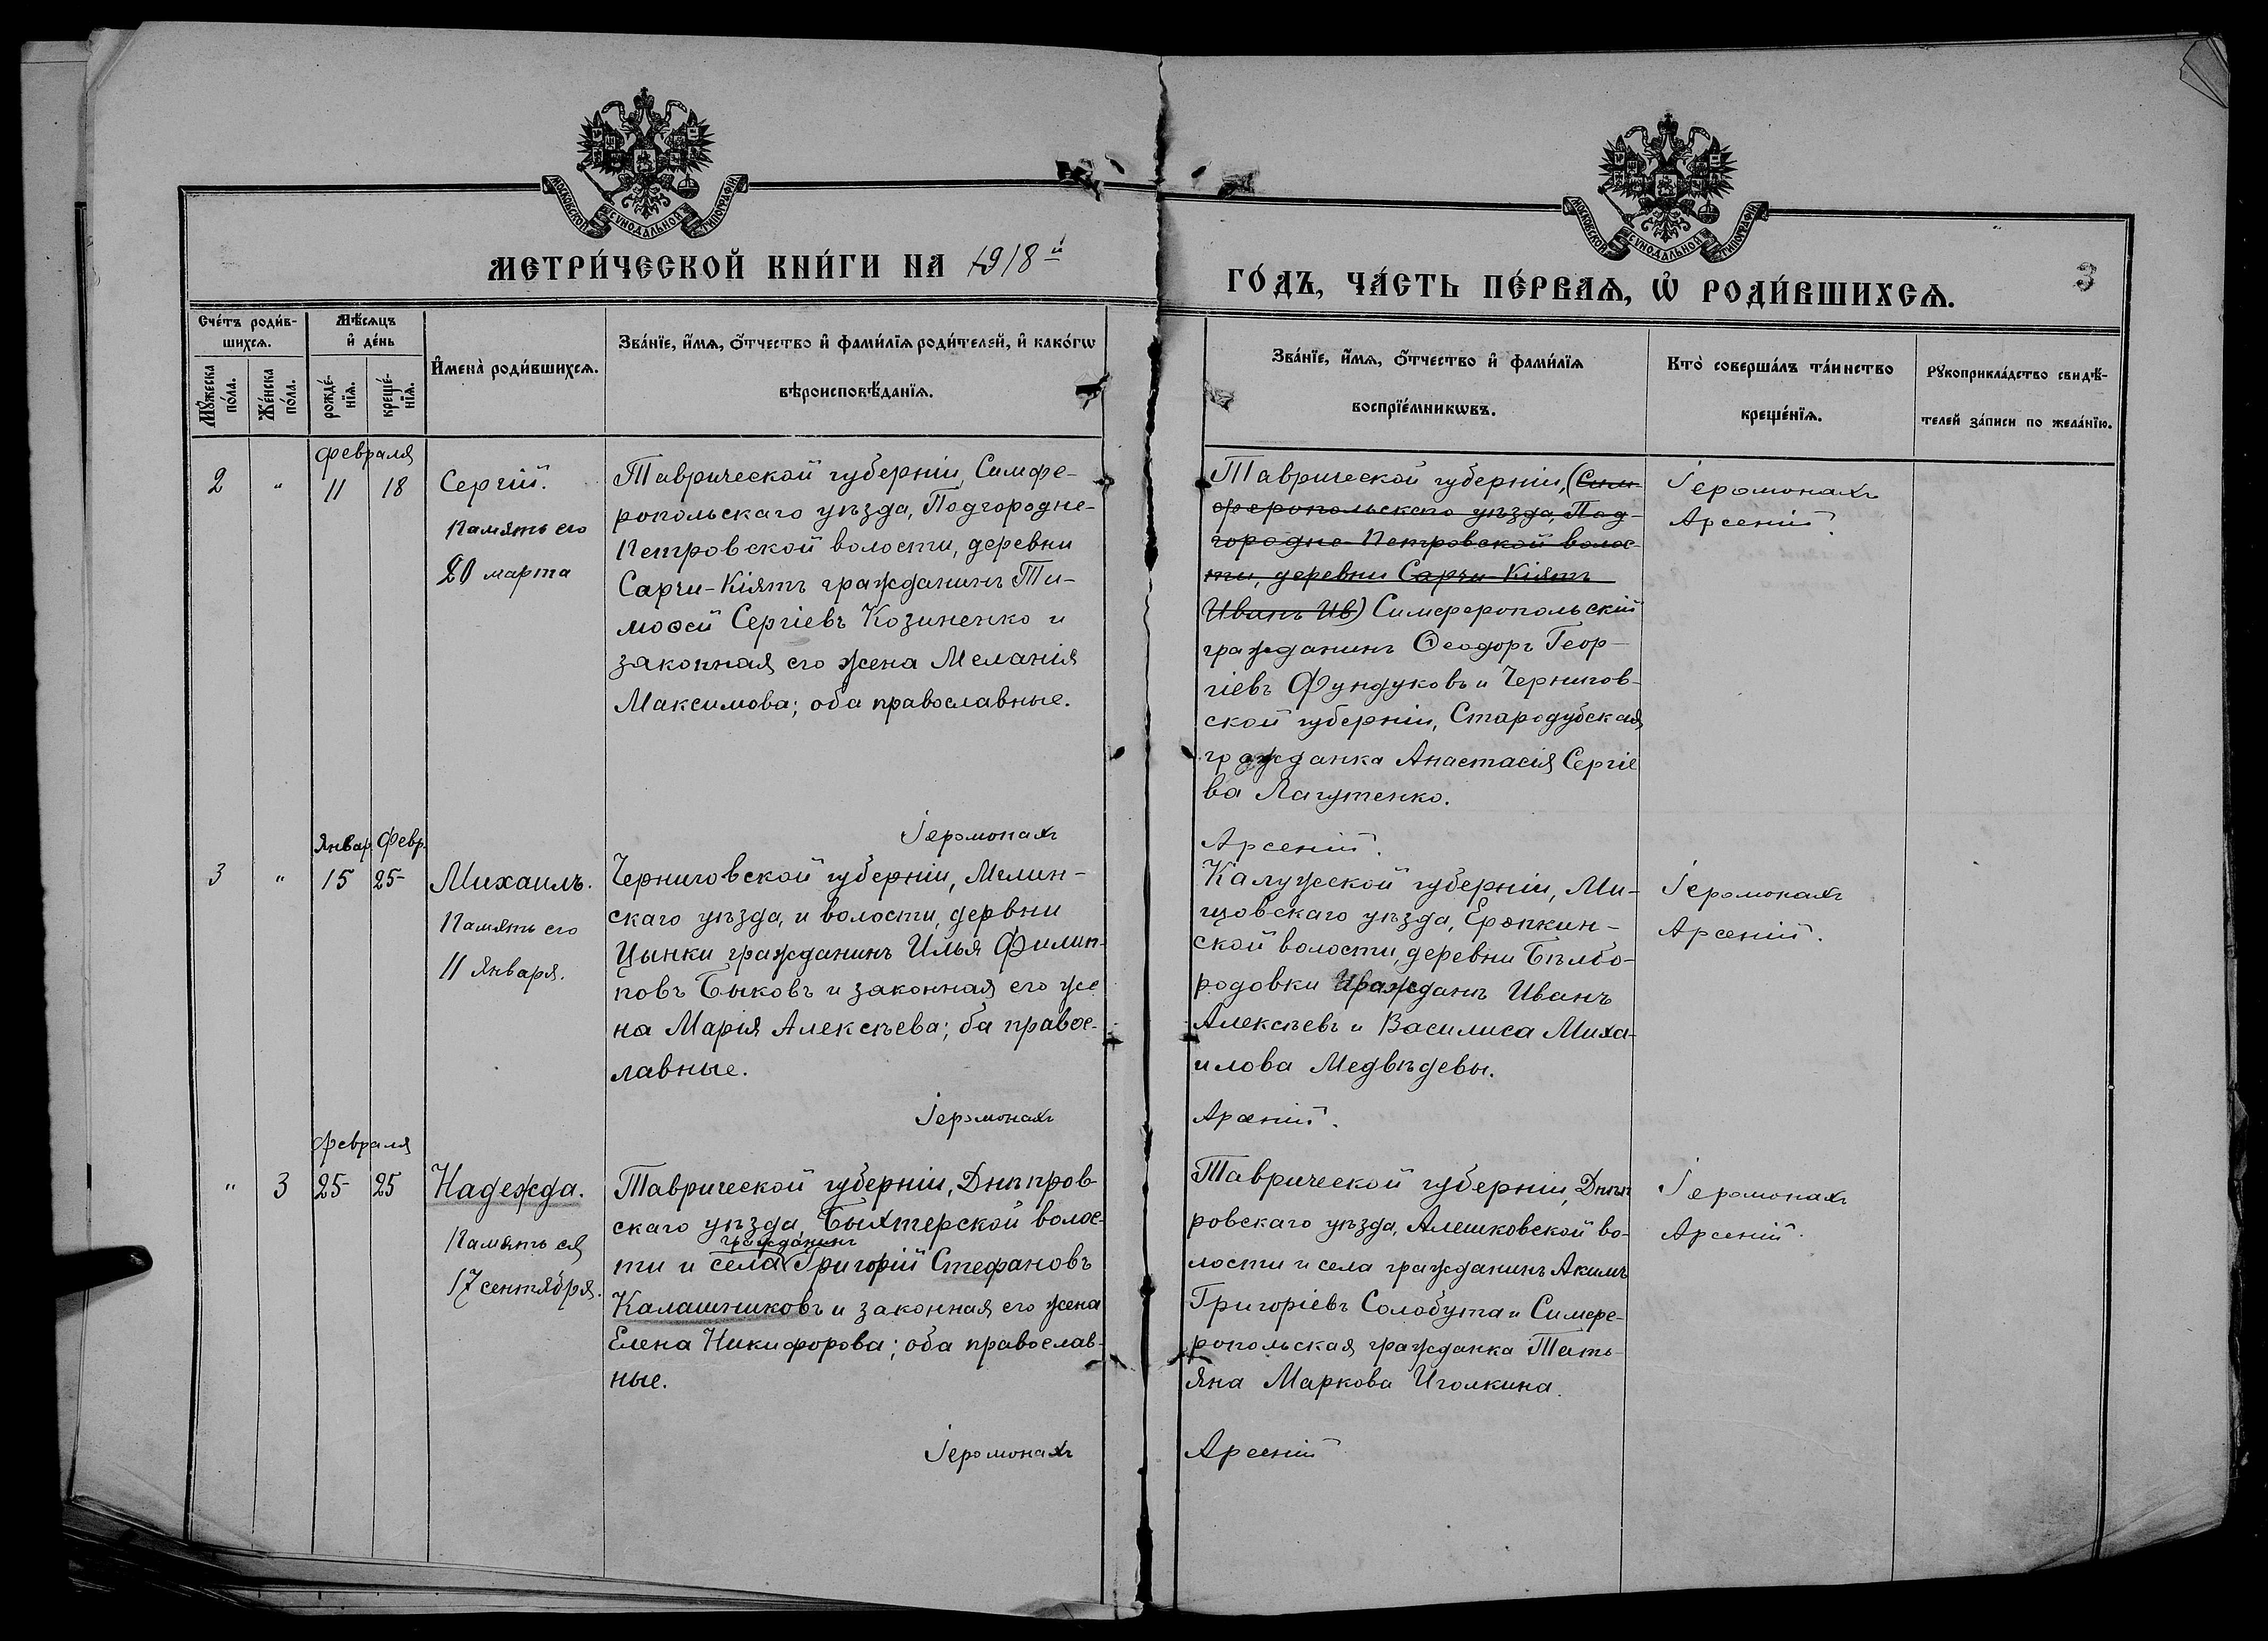 МОСКОВСКОЙ СѴНОДАЛЬНОЙ ТИПОГРАФІИ
МОСКОВСКОЙ СѴНОДАЛЬНОЙ ТИПОГРАФІИ
МЕТРИ́ЧЕСКОЙ КНИ́ГИ НА 1918й
ГО́ДЪ, ЧА́СТЬ ПЕ́РВАѦ, Ѡ҆ РОДИ́ВШИХСѦ.
3
Сче́тъ роди́в-
шихсѧ.
Мѣ́сѧцъ
и҆ де́нь
Мꙋ́жеска
по́ла.
Же́нска
по́ла.
рожде́-
нїѧ.
креще́-
нїѧ.
И҆мена̀ роди́вшихсѧ.
Зва́нїе, и҆́мѧ, ѻ҆́тчество и҆ фами́лїѧ роди́телей, и҆ како́гѡ
вѣроисповѣ́данїѧ.
Зва́нїе, и҆́мѧ, ѻ҆́тчество и҆ фами́лїѧ
воспрїе́мникѡвъ.
Кто̀ соверша́лъ та́инство
креще́нїѧ.
Рꙋкоприкла́дство свидѣ́-
телей за́писи по жела́нїю.
февраля
2 " 11 18
Сергій.
Память его
20 марта
Таврической губерніи, Симфе-
ропольскаго уѣзда, Подгородне-
Петровской волости, деревни
Сарчи-Кіятъ гражданинъ Ти-
моѳей Сергіевъ Козиненко и
законная его жена Меланія
Максимова; оба православные.
Іеромонахъ
Таврической губерніи, (Сим-
феропольскаго уѣзда, Под-
городне-Петровской волос-
ти, деревни Сарчи-Кіятъ
Иванъ Ив) Симферопольскій
гражданинъ Ѳеодоръ Геор-
гіевъ Фундуковъ и Чернигов-
ской губерніи, Стародубская
гражданка Анастасія Сергіе
ва Лагутенко.
Арсеній.
Іеромонахъ
Арсеній.
Январ. Февр.
3 " 15 25
Михаилъ.
Память его
11 Января.
Черниговской губерніи, Мглин-
скаго уѣзда, и волости, дервни
Цынки гражданинъ Илья Филип-
повъ Быковъ и законная его же
на Марія Алексѣева; ба правос-
лавные.
Іеромонахъ
Калужской губерніи, Ми-
щовскаго уѣзда, Еропкин-
ской волости, деревни Бѣлбо-
родовки Граждане Иванъ
Алексѣевъ и Василиса Миха-
илова Медвѣдевы.
Арсеній.
Іеромонахъ
Арсеній.
февраля
" 3 25 25
Надежда.
Память ея
17 сентября.
Таврической губерніи, Днѣпров-
скаго уѣзда, Быхтерской волос-
гражданинъ
ти и села Григорій Стефановъ
Калашниковъ и законная его жена
Елена Никифорова; оба православ-
ные.
Іеромонахъ
Таврической губерніи, Днѣп
ровскаго уѣзда, Алешковской во-
лости и села гражданинъ Акимъ
Григоріевъ Солобута и Симфе-
ропольская гражданка Тать-
яна Маркова Иголкина.
Арсеній
Іеромонахъ
Арсеній.